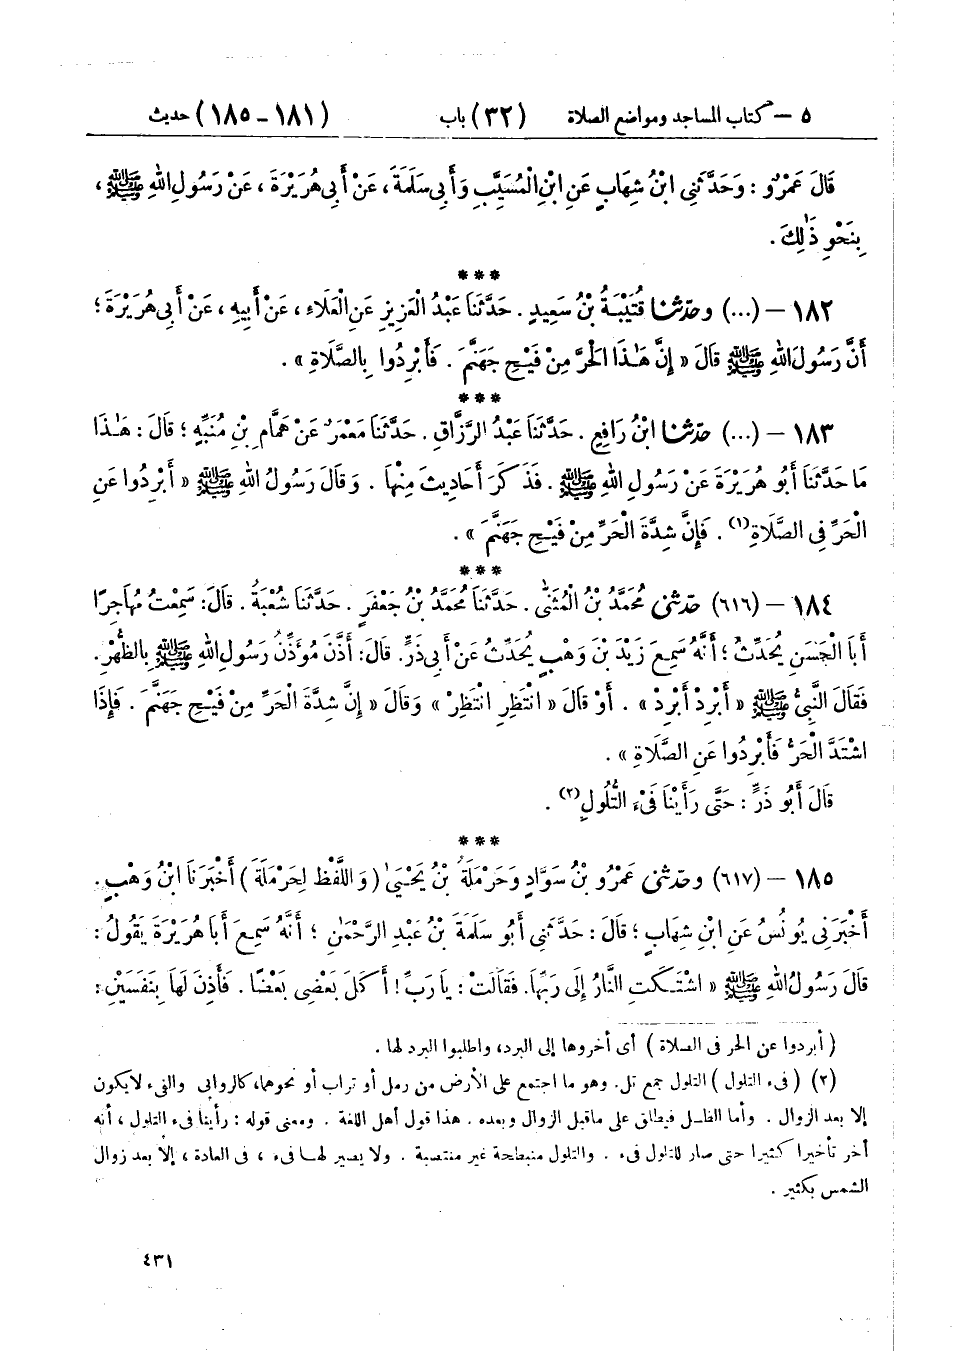 ٥ – كتاب المساجد ومواضع الصلاة (٣٢) باب (١٨١-١٨٥) حديث
قَالَ عَمْرٌو : وَحَدَّثَنِى ابْنُ شِهَابٍ عَنِ ابْنِ الْمُسَيَّبِ وَأَبِى سَلَمَةَ ، عَنْ أَبِى هُرَيْرَةَ ، عَنْ رَسُولِ اللهِ ﷺ ،
بِنَحْوِ ذٰلِكَ .
***
١٨٢ – (...) وحَدَّثَنَا قُتَيْبَةُ بْنُ سَعِيدٍ . حَدَّثَنَا عَبْدُ الْعَزِيزِ عَنِ الْعَلَاءِ ، عَنْ أَبِيهِ ، عَنْ أَبِى هُرَيْرَةَ ؛
أَنَّ رَسُولَ اللهِ ﷺ قَالَ « إِنَّ هٰذَا الْحَرَّ مِنْ فَيْحِ جَهَنَّمَ . فَأَبْرِدُوا بِالصَّلَاةِ » .
***
١٨٣ – (...) حَدَّثَنَا ابْنُ رَافِعٍ . حَدَّثَنَا عَبْدُ الرَّزَّاقِ . حَدَّثَنَا مَعْمَرٌ عَنْ هَمَّامِ بْنِ مُنَبِّهٍ ؛ قَالَ : هٰذَا
مَا حَدَّثَنَا أَبُو هُرَيْرَةَ عَنْ رَسُولِ اللهِ ﷺ . فَذَكَرَ أَحَادِيثَ مِنْهَا . وَقَالَ رَسُولُ اللهِ ﷺ « أَبْرِدُوا عَنِ
الْحَرِّ فِى الصَّلَاةِ(١) . فَإِنَّ شِدَّةَ الْحَرِّ مِنْ فَيْحِ جَهَنَّمَ » .
***
١٨٤ – (٦١٦) حَدَّثَنِى مُحَمَّدُ بْنُ الْمُثَنَّى . حَدَّثَنَا مُحَمَّدُ بْنُ جَعْفَرٍ . حَدَّثَنَا شُعْبَةُ . قَالَ : سَمِعْتُ مُهَاجِرًا
أَبَا الْحَسَنِ يُحَدِّثُ ؛ أَنَّهُ سَمِعَ زَيْدَ بْنَ وَهْبٍ يُحَدِّثُ عَنْ أَبِى ذَرٍّ. قَالَ : أَذَّنَ مُؤَذِّنُ رَسُولِ اللهِ ﷺ بِالظُّهْرِ.
فَقَالَ النَّبِىُّ ﷺ « أَبْرِدْ أَبْرِدْ » . أَوْ قَالَ « انْتَظِرِ انْتَظِرْ » وَقَالَ « إِنَّ شِدَّةَ الْحَرِّ مِنْ فَيْحِ جَهَنَّمَ . فَإِذَا
اشْتَدَّ الْحَرُّ فَأَبْرِدُوا عَنِ الصَّلَاةِ » .
قَالَ أَبُو ذَرٍّ : حَتَّى رَأَيْنَا فَىْءَ التُّلُولِ(٢) .
***
١٨٥ – (٦١٧) وحَدَّثَنِى عَمْرُو بْنُ سَوَّادٍ وَحَرْمَلَةُ بْنُ يَحْيَىٰ (وَاللَّفْظُ لِحَرْمَلَةَ) أَخْبَرَنَا ابْنُ وَهْبٍ.
أَخْبَرَنِى يُونُسُ عَنِ ابْنِ شِهَابٍ ؛ قَالَ : حَدَّثَنِى أَبُو سَلَمَةَ بْنُ عَبْدِ الرَّحْمٰنِ ؛ أَنَّهُ سَمِعَ أَبَا هُرَيْرَةَ يَقُولُ :
قَالَ رَسُولُ اللهِ ﷺ « اشْتَكَتِ النَّارُ إِلَى رَبِّهَا. فَقَالَتْ : يَا رَبِّ ! أَكَلَ بَعْضِى بَعْضًا . فَأَذِنَ لَهَا بِنَفَسَيْنِ :
( أبردوا عن الحر فى الصلاة ) أى أخروها إلى البرد، واطلبوا البرد لها .
(٢) (فىء التلول ) التلول جمع تل. وهو ما اجتمع على الأرض من رمل أو تراب أو نحوهما، كالروابى والفىء لايكون
إلا بعد الزوال . وأما الظل فيطلق على ماقبل الزوال وبعده . هذا قول أهل اللغة . ومعنى قوله : رأينا فىء التلول ، أنه
أخر تأخيرا كثيرا حتى صار للتلول فىء . والتلول منبطحة غير منتصبة . ولا يصير لها فىء ، فى العادة ، إلا بعد زوال
الشمس بكثير .
٤٣١